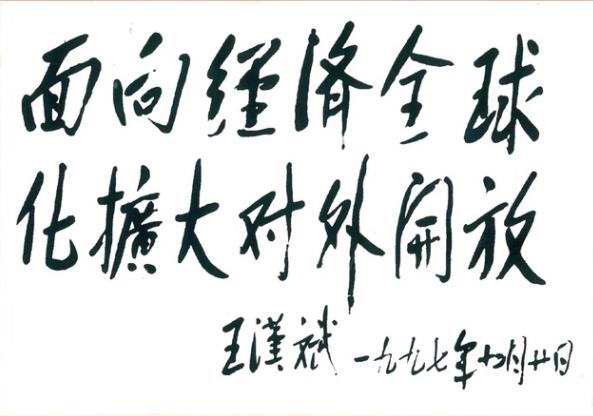 面向經濟全球
化擴大对外開放
王漢斌 一九九七年月廿日